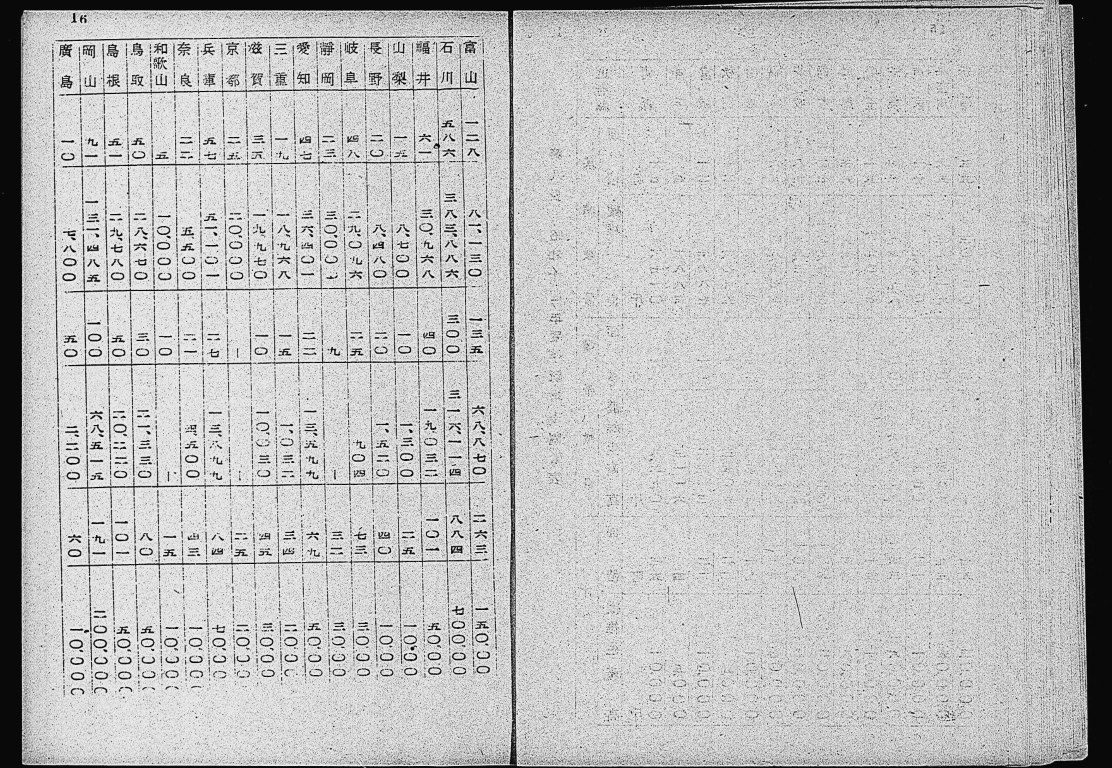 16
富山 一二八 八一、一三〇 一三五 六八、八七〇 二六三 一五〇、〇〇〇
石川 五八六 三八三、八八六 三〇〇 三一六、一一四 八八四 七〇〇、〇〇〇
福井 六一 三〇、九六八 四〇 一九、〇三二 一〇一 五〇、〇〇〇
山梨 一五 八、七〇〇 一〇 一、三〇〇 二五 一〇、〇〇〇
長野 二〇 八、四八〇 二〇 一、五二〇 四〇 一〇、〇〇〇
岐阜 四八 二九、〇九六 二五 九〇四 七三 三〇、〇〇〇
靜岡 二三 三〇、〇〇〇 九 — 三二 三〇、〇〇〇
愛知 四七 三六、四〇一 二二 一三、五九九 六九 五〇、〇〇〇
三重 一九 一八、九六八 一五 一、〇三二 三四 二〇、〇〇〇
滋賀 三五 一九、九七〇 一〇 一〇、〇三〇 四五 三〇、〇〇〇
京都 二五 二〇、〇〇〇 — — 二五 二〇、〇〇〇
兵庫 五七 五一、一〇一 二七 一三、八九九 八四 七〇、〇〇〇
奈良 二二 五、五〇〇 二一 四、五〇〇 四三 一〇、〇〇〇
和歌山 五 一〇、〇〇〇 一〇 — 一五 一〇、〇〇〇
鳥取 五〇 二八、六七〇 三〇 二一、三三〇 八〇 五〇、〇〇〇
島根 五一 二九、七八〇 五〇 二〇、二二〇 一〇一 五〇、〇〇〇
岡山 九一 一三一、四八五 一〇〇 六八、五一五 一九一 二〇〇、〇〇〇
廣島 一〇 七、八〇〇 五〇 二、二〇〇 六〇 一〇、〇〇〇